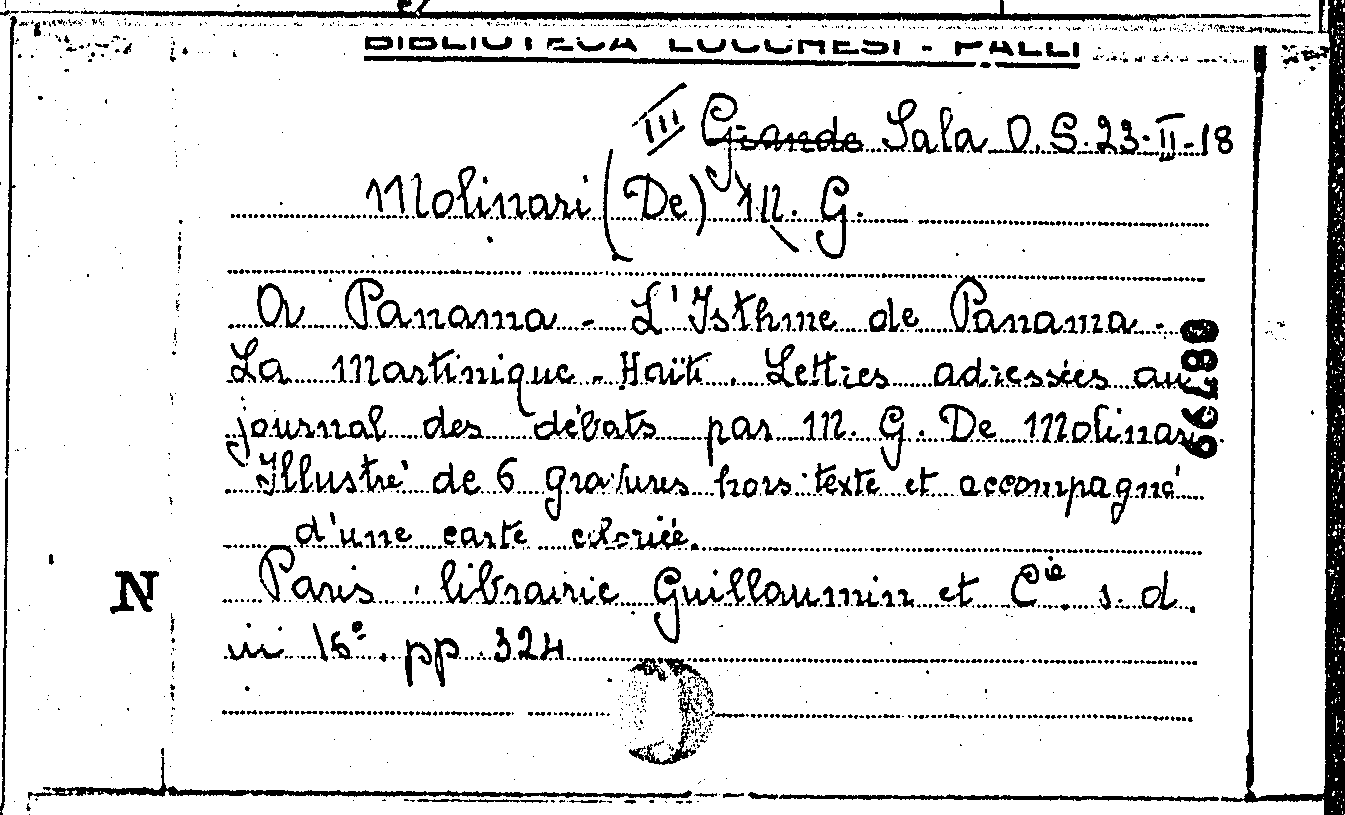 BIBLIOTECA LUCCHESI - PALLI
III Grande Sala O. S. 23-II-18
Molinari (De) M. G.
A Panama - L'Isthme de Panama -
La Martinique - Haïti. Lettres adressées au
journal des débats par M. G. De Molinari
Illustré de 6 gravures hors texte et accompagné
d'une carte coloriée.
Paris. librairie Guillaumin et Cie s. d.
in 16°. pp. 324
N
08799